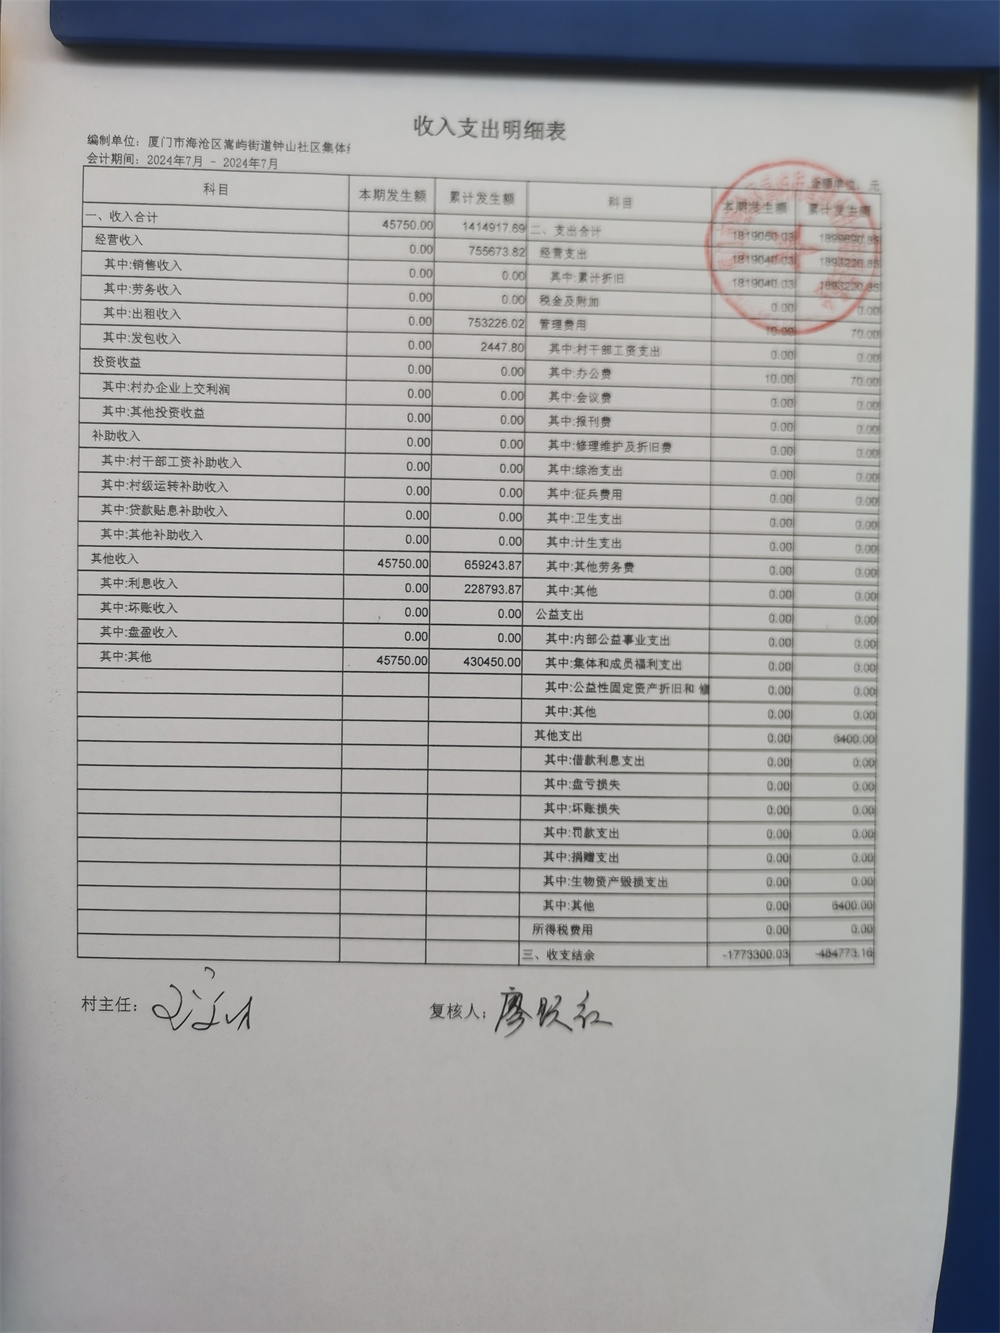 收入支出明细表
编制单位: 厦门市海沧区嵩屿街道钟山社区集体
会计期间: 2024年7月 - 2024年7月 金额单位: 元
科目 本期发生额 累计发生额 科目 本期发生额 累计发生额
一、收入合计 45750.00 1414917.69 二、支出合计 1819050.03
经营收入 0.00 755673.82 经营支出 1819040.03
其中:销售收入 0.00 0.00 其中:累计折旧 1819040.03
其中:劳务收入 0.00 0.00 税金及附加 0.00 0.00
其中:出租收入 0.00 753226.02 管理费用 10.00 70.00
其中:发包收入 0.00 2447.80 其中:村干部工资支出 0.00 0.00
投资收益 0.00 0.00 其中:办公费 10.00 70.00
其中:村办企业上交利润 0.00 0.00 其中:会议费 0.00 0.00
其中:其他投资收益 0.00 0.00 其中:报刊费 0.00 0.00
补助收入 0.00 0.00 其中:修理维护及折旧费 0.00 0.00
其中:村干部工资补助收入 0.00 0.00 其中:综治支出 0.00 0.00
其中:村级运转补助收入 0.00 0.00 其中:征兵费用 0.00 0.00
其中:贷款贴息补助收入 0.00 0.00 其中:卫生支出 0.00 0.00
其中:其他补助收入 0.00 0.00 其中:计生支出 0.00 0.00
其他收入 45750.00 659243.87 其中:其他劳务费 0.00 0.00
其中:利息收入 0.00 228793.87 其中:其他 0.00 0.00
其中:坏账收入 0.00 0.00 公益支出 0.00 0.00
其中:盘盈收入 0.00 0.00 其中:内部公益事业支出 0.00 0.00
其中:其他 45750.00 430450.00 其中:集体和成员福利支出 0.00 0.00
其中:公益性固定资产折旧和 修 0.00 0.00
其中:其他 0.00 0.00
其他支出 0.00 6400.00
其中:借款利息支出 0.00 0.00
其中:盘亏损失 0.00 0.00
其中:坏账损失 0.00 0.00
其中:罚款支出 0.00 0.00
其中:捐赠支出 0.00 0.00
其中:生物资产毁损支出 0.00 0.00
其中:其他 0.00 6400.00
所得税费用 0.00 0.00
三、收支结余 -1773300.03 -484773.16
村主任: 复核人: 廖跃红